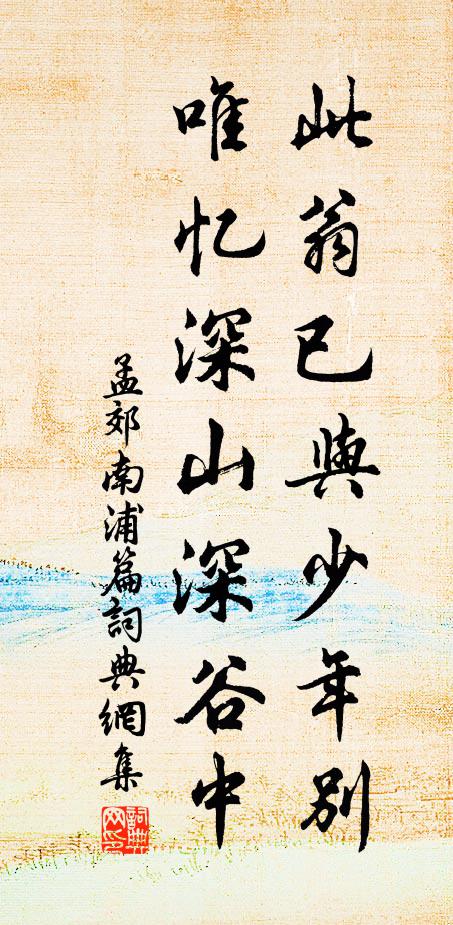 此翁已與少年别
唯忆深山深谷中
孟郊南浦篇詞典網集
詞典网印